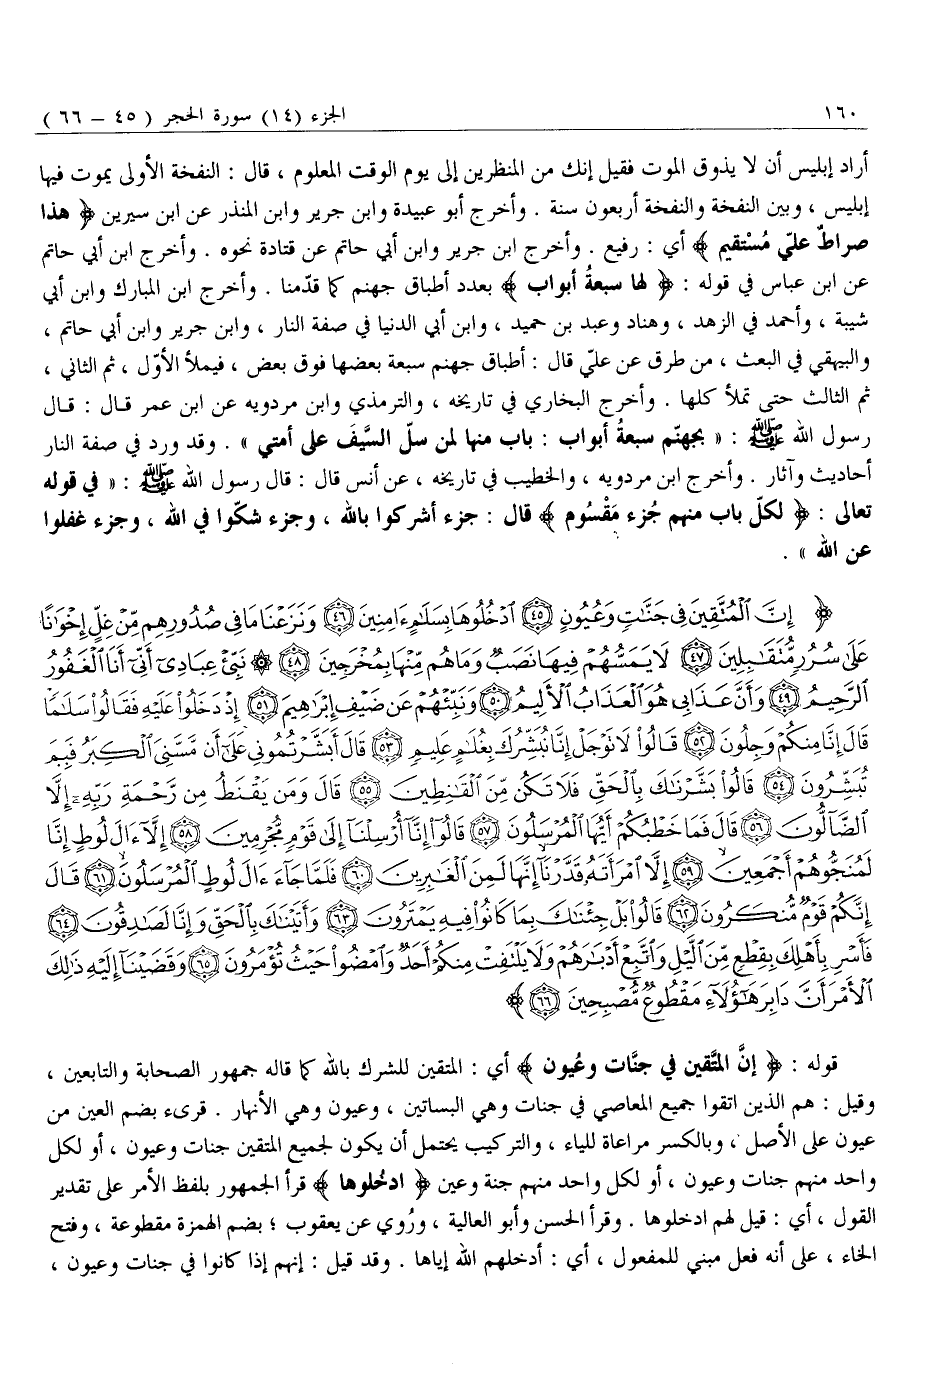 ١٦٠ الجزء (١٤) سورة الحجر ( ٤٥ – ٦٦ )
أراد إبليس أن لا يذوق الموت فقيل إنك من المنظرين إلى يوم الوقت المعلوم ، قال : النفخة الأولى يموت فيها
إبليس ، وبين النفخة والنفخة أربعون سنة . وأخرج أبو عبيدة وابن جرير وابن المنذر عن ابن سيرين ﴿ هذا
صراطٌ عليّ مُسْتقيم ﴾ أي : رفيع . وأخرج ابن جرير وابن أبي حاتم عن قتادة نحوه . وأخرج ابن أبي حاتم
عن ابن عباس في قوله : ﴿ لها سبعةُ أبواب ﴾ بعدد أطباق جهنم كما قدّمنا . وأخرج ابن المبارك وابن أبي
شيبة ، وأحمد في الزهد ، وهناد وعبد بن حميد ، وابن أبي الدنيا في صفة النار ، وابن جرير وابن أبي حاتم ،
والبيهقي في البعث ، من طرق عن عليّ قال : أطباق جهنم سبعة بعضها فوق بعض ، فيملأ الأوّل ، ثم الثاني ،
ثم الثالث حتى تملأ كلها . وأخرج البخاري في تاريخه ، والترمذي وابن مردويه عن ابن عمر قال : قال
رسول الله ﷺ : « بجهنّم سبعةُ أبواب : باب منها لمن سلّ السَّيفَ على أمتي » . وقد ورد في صفة النار
أحاديث وآثار . وأخرج ابن مردويه ، والخطيب في تاريخه ، عن أنس قال : قال رسول الله ﷺ : « في قوله
تعالى : ﴿ لكلّ باب منهم جُزء مَقْسُوم ﴾ قال : جزء أشركوا بالله ، وجزء شكّوا في الله ، وجزء غفلوا
عن الله » .
﴿ إِنَّ ٱلْمُتَّقِينَ فِى جَنَّٰتٍ وَعُيُونٍ ٤٥ ٱدْخُلُوهَا بِسَلَٰمٍ ءَامِنِينَ ٤٦ وَنَزَعْنَا مَا فِى صُدُورِهِم مِّنْ غِلٍّ إِخْوَٰنًا
عَلَىٰ سُرُرٍ مُّتَقَٰبِلِينَ ٤٧ لَا يَمَسُّهُمْ فِيهَا نَصَبٌ وَمَا هُم مِّنْهَا بِمُخْرَجِينَ ٤٨ ۞ نَبِّئْ عِبَادِىٓ أَنِّىٓ أَنَا ٱلْغَفُورُ
ٱلرَّحِيمُ ٤٩ وَأَنَّ عَذَابِى هُوَ ٱلْعَذَابُ ٱلْأَلِيمُ ٥٠ وَنَبِّئْهُمْ عَن ضَيْفِ إِبْرَٰهِيمَ ٥١ إِذْ دَخَلُوا۟ عَلَيْهِ فَقَالُوا۟ سَلَٰمًا
قَالَ إِنَّا مِنكُمْ وَجِلُونَ ٥٢ قَالُوا۟ لَا تَوْجَلْ إِنَّا نُبَشِّرُكَ بِغُلَٰمٍ عَلِيمٍ ٥٣ قَالَ أَبَشَّرْتُمُونِى عَلَىٰٓ أَن مَّسَّنِىَ ٱلْكِبَرُ فَبِمَ
تُبَشِّرُونَ ٥٤ قَالُوا۟ بَشَّرْنَٰكَ بِٱلْحَقِّ فَلَا تَكُن مِّنَ ٱلْقَٰنِطِينَ ٥٥ قَالَ وَمَن يَقْنَطُ مِن رَّحْمَةِ رَبِّهِۦٓ إِلَّا
ٱلضَّآلُّونَ ٥٦ قَالَ فَمَا خَطْبُكُمْ أَيُّهَا ٱلْمُرْسَلُونَ ٥٧ قَالُوٓا۟ إِنَّآ أُرْسِلْنَآ إِلَىٰ قَوْمٍ مُّجْرِمِينَ ٥٨ إِلَّآ ءَالَ لُوطٍ إِنَّا
لَمُنَجُّوهُمْ أَجْمَعِينَ ٥٩ إِلَّا ٱمْرَأَتَهُۥ قَدَّرْنَآ إِنَّهَا لَمِنَ ٱلْغَٰبِرِينَ ٦٠ فَلَمَّا جَآءَ ءَالَ لُوطٍ ٱلْمُرْسَلُونَ ٦١ قَالَ
إِنَّكُمْ قَوْمٌ مُّنكَرُونَ ٦٢ قَالُوا۟ بَلْ جِئْنَٰكَ بِمَا كَانُوا۟ فِيهِ يَمْتَرُونَ ٦٣ وَأَتَيْنَٰكَ بِٱلْحَقِّ وَإِنَّا لَصَٰدِقُونَ ٦٤
فَأَسْرِ بِأَهْلِكَ بِقِطْعٍ مِّنَ ٱلَّيْلِ وَٱتَّبِعْ أَدْبَٰرَهُمْ وَلَا يَلْتَفِتْ مِنكُمْ أَحَدٌ وَٱمْضُوا۟ حَيْثُ تُؤْمَرُونَ ٦٥ وَقَضَيْنَآ إِلَيْهِ ذَٰلِكَ
ٱلْأَمْرَ أَنَّ دَابِرَ هَٰٓؤُلَآءِ مَقْطُوعٌ مُّصْبِحِينَ ٦٦ ﴾
قوله : ﴿ إنَّ المتَّقين في جنَّات وعُيون ﴾ أي : المتقين للشرك بالله كما قاله جمهور الصحابة والتابعين ،
وقيل : هم الذين اتقوا جميع المعاصي في جنات وهي البساتين ، وعيون وهي الأنهار . قرىء بضم العين من
عيون على الأصل ، وبالكسر مراعاة للياء ، والتركيب يحتمل أن يكون لجميع المتقين جنات وعيون ، أو لكل
واحد منهم جنات وعيون ، أو لكل واحد منهم جنة وعين ﴿ ادخُلوها ﴾ قرأ الجمهور بلفظ الأمر على تقدير
القول ، أي : قيل لهم ادخلوها . وقرأ الحسن وأبو العالية ، ورُوي عن يعقوب ؛ بضم الهمزة مقطوعة ، وفتح
الخاء ، على أنه فعل مبني للمفعول ، أي : أدخلهم الله إياها . وقد قيل : إنهم إذا كانوا في جنات وعيون ،